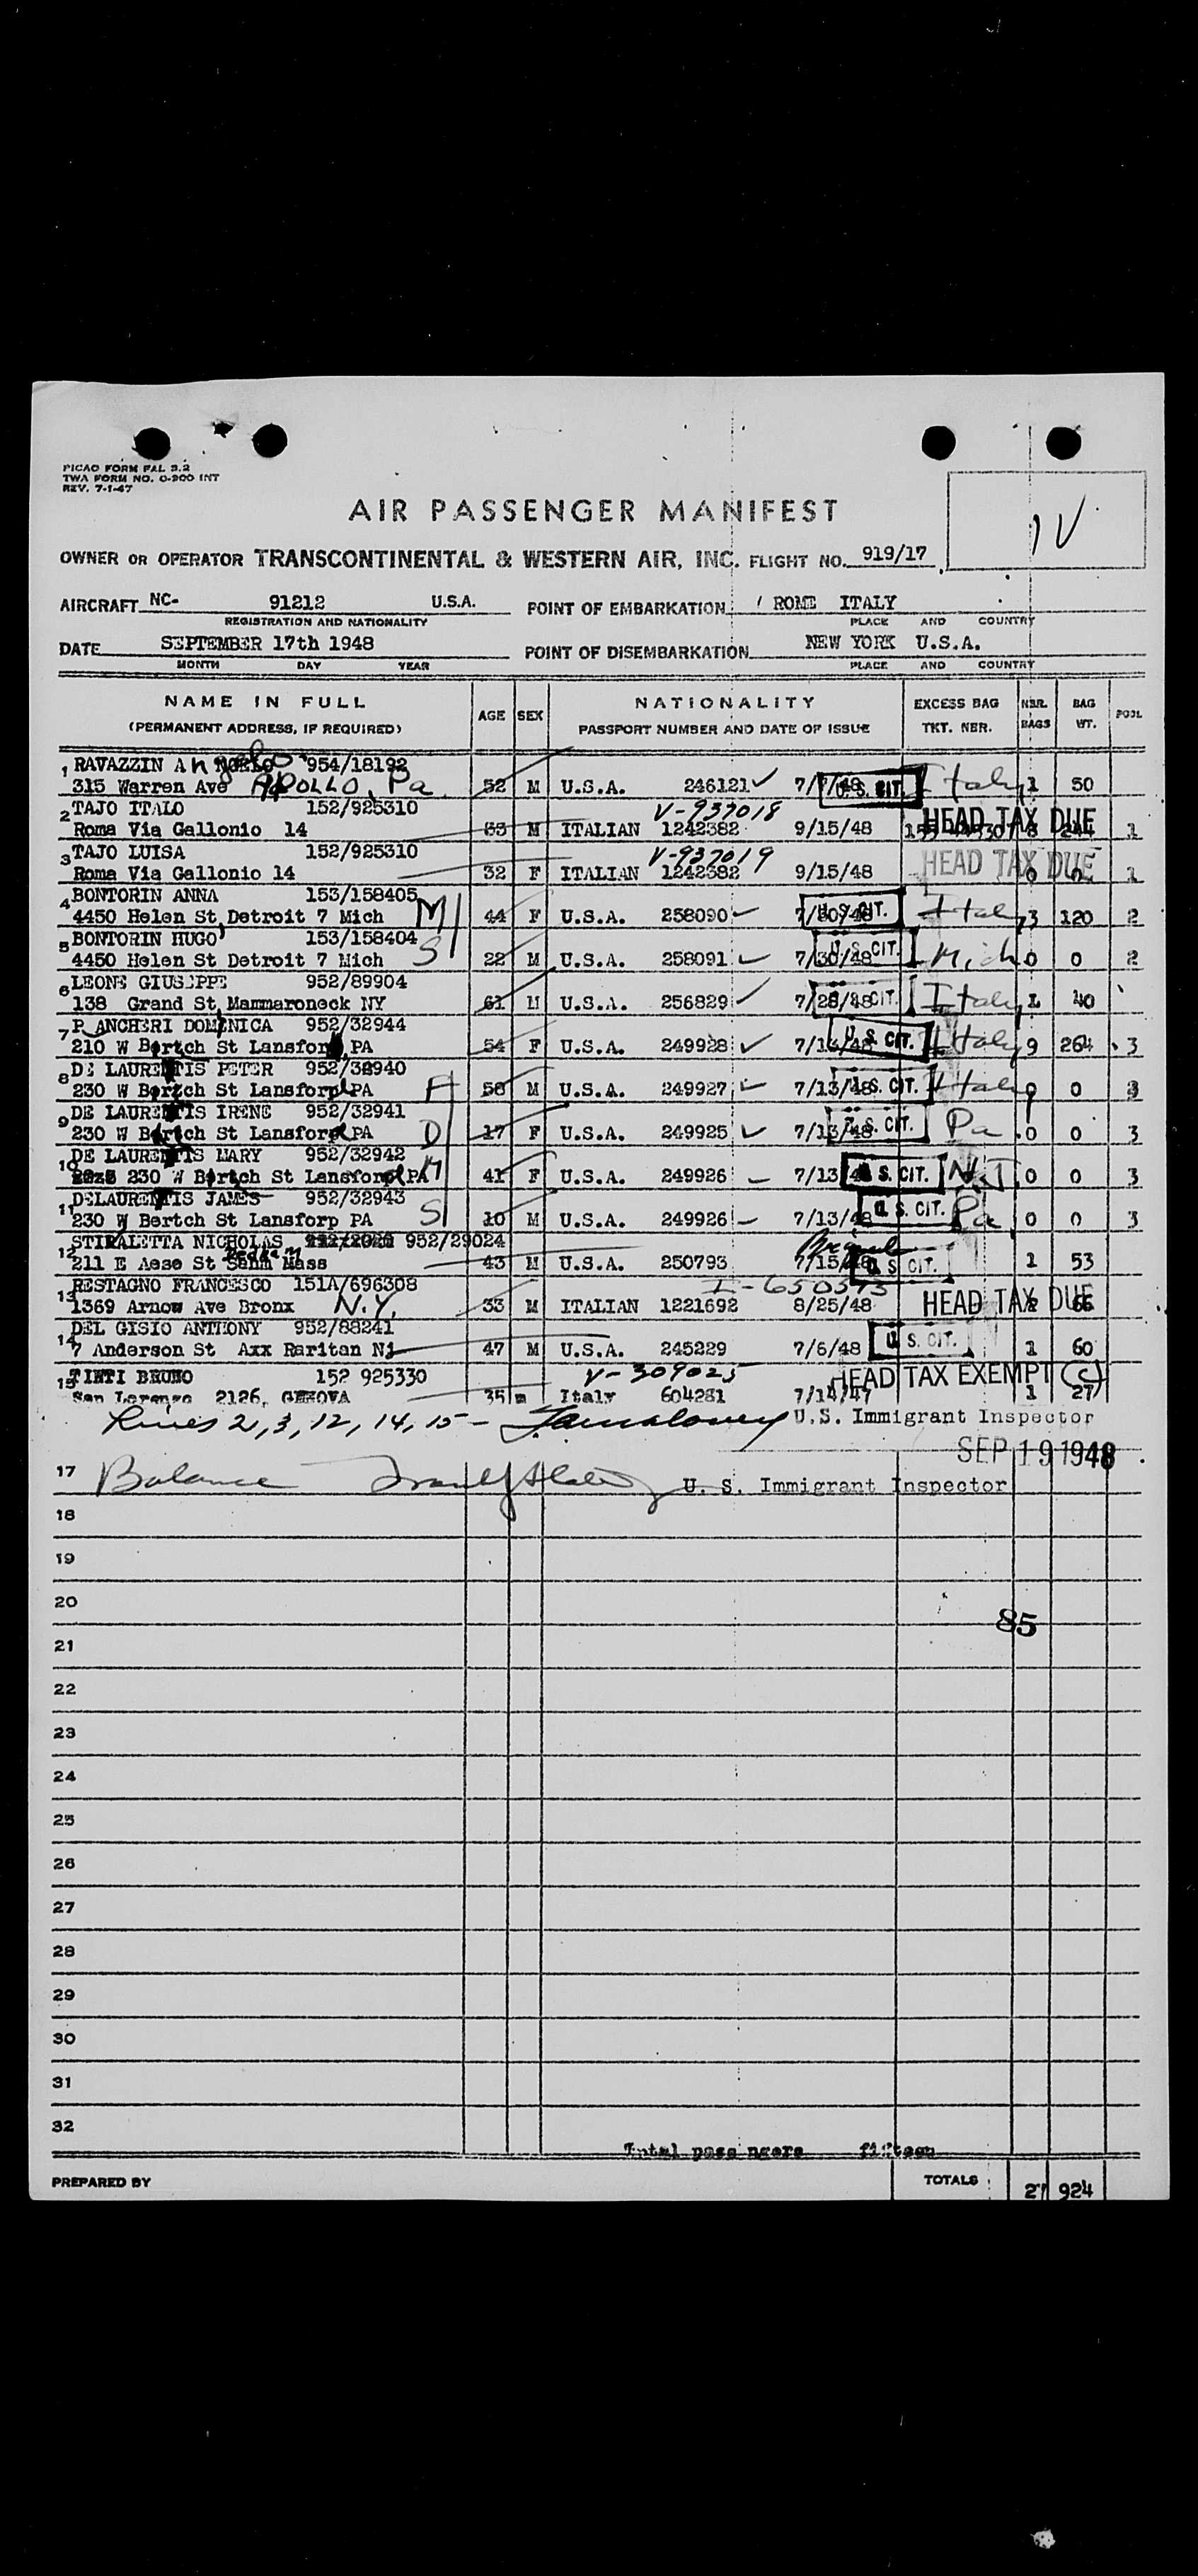 PICAO FORM FAL 3.2
TWA FORM NO. O-900 INT
REV. 7-1-47
AIR PASSENGER MANIFEST
IV
OWNER OR OPERATOR TRANSCONTINENTAL & WESTERN AIR, INC. FLIGHT NO. 919/17
AIRCRAFT NC- 91212 U.S.A. POINT OF EMBARKATION ROME ITALY
REGISTRATION AND NATIONALITY PLACE AND COUNTRY
DATE SEPTEMBER 17th 1948 POINT OF DISEMBARKATION NEW YORK U.S.A.
MONTH DAY YEAR PLACE AND COUNTRY
NAME IN FULL AGE SEX NATIONALITY EXCESS BAG NBR. BAG POOL
(PERMANENT ADDRESS, IF REQUIRED) PASSPORT NUMBER AND DATE OF ISSUE TKT. NBR. BAGS WT.
1 RAVAZZIN Angelo 954/18192
315 Warren Ave APOLLO, Pa. 52 M U.S.A. 246121 7/7/48 U.S. CIT. Italy 1 50
2 TAJO ITALO 152/925310 V-937018 HEAD TAX DUE
Roma Via Gallonio 14 33 M ITALIAN 1242382 9/15/48 1
3 TAJO LUISA 152/925310 V-937019 HEAD TAX DUE
Roma Via Gallonio 14 32 F ITALIAN 1242382 9/15/48 0 0 1
4 BONTORIN ANNA 153/158405 M
4450 Helen St Detroit 7 Mich 44 F U.S.A. 258090 7/30/48 U.S. CIT. Italy 3 120 2
5 BONTORIN HUGO 153/158404 S
4450 Helen St Detroit 7 Mich 22 M U.S.A. 258091 7/30/48 U.S. CIT. Mich 0 0 2
6 LEONE GIUSEPPE 952/89904
138 Grand St Mammaroneck NY 61 M U.S.A. 256829 7/28/48 U.S. CIT. Italy 1 40
7 PANCHERI DOMENICA 952/32944
210 W Bertch St Lansford, PA 54 F U.S.A. 249928 7/13/48 U.S. CIT. Italy 9 264 3
8 DE LAURENTIS PETER 952/32940
230 W Bertch St Lansford PA F 58 M U.S.A. 249927 7/13/48 U.S. CIT. Italy 0 0 3
9 DE LAURENTIS IRENE 952/32941
230 W Bertch St Lansford PA D 17 F U.S.A. 249925 7/13/48 U.S. CIT. Pa. 0 0 3
10 DE LAURENTIS MARY 952/32942
230 W Bertch St Lansford PA M 41 F U.S.A. 249926 7/13 U.S. CIT. N.J. 0 0 3
11 DELAURENTIS JAMES 952/32943
230 W Bertch St Lansforp PA S 10 M U.S.A. 249926 7/13/48 U.S. CIT. Pa 0 0 3
12 STIRALETTA NICHOLAS 952/29024
211 E Mass 43 M U.S.A. 250793 7/15/48 U.S. CIT. 1 53
13 RESTAGNO FRANCESCO 151A/696308 I-650573
1369 Arnow Ave Bronx N.Y. 33 M ITALIAN 1221692 8/25/48 HEAD TAX DUE
14 DEL GISIO ANTHONY 952/88241
7 Anderson St Axx Raritan NJ 47 M U.S.A. 245229 7/6/48 U.S. CIT. 1 60
15 TINTI BRUNO 152 925330 V-309025 HEAD TAX EXEMPT (C)
San Lorenzo 2126, GENOVA 35 m Italy 604281 7/14/47 1 27
Lines 2, 3, 12, 14, 15 - U.S. Immigrant Inspector
SEP 19 1948
17 Balance U. S. Immigrant Inspector
18
19
20
85
21
22
23
24
25
26
27
28
29
30
31
32
Total passengers fifteen
PREPARED BY TOTALS 21 924